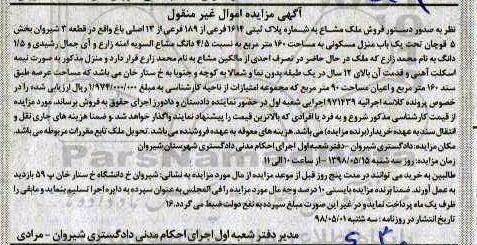 آگهی مزایده اموال غیر منقول
نظر به صدور دستور فروش ملک مشاع به شماره پلاک ثبتی ۱۶۱۴ فرعی از ۱۸۹ فرعی از ۱۳ اصلی باغ واقع در قطعه ۳ شیروان بخش
۵ قوچان تحت یک باب منزل مسکونی به مساحت ۱۶۰ متر مربع به نسبت ۴/۵ دانگ مشاع السویه امنه زارع و آی جمال رشیدی و ۱/۵
دانگ به نام محمد زارع که ملک در حال حاضر در تصرف احدی از مالکین مشاع به نام محمد زارع قرار دارد و منزل مذکور به صورت نیمه
اسکلت آهنی و قدمت آن بالای ۱۲ سال در یک طبقه بدون نما و شمالا به کوچه و جنوبا به خ ستار خان می باشد که مساحت عرصه طبق
سند ۱۶۰ متر مربع و اعیان مساحت ۹۰ متر مربع که مجموعه امتیازات از ناحیه کارشناسی به مبلغ ۱/۹۷۴/۰۰۰/۰۰۰ ریال ارزیابی شده را در
خصوص پرونده کلاسه اجرائیه ۹۷۱۲۳۹ اجرایی شعبه اول در حضور نماینده دادستان و دادورز اجرای حقوق به فروش برساند، مورد مزایده
از قیمت کارشناسی مذکور شروع و به فرد یا افرادی که بالاترین قیمت را پیشنهاد نمایند واگذار خواهد شد و ضمنا هزینه های جاری نقل و
انتقال سند به عهده خریدار (برنده مزایده) می باشد. هزینه های معوقه به عهده فروشنده می باشد. تحویل ملک تابع مقررات مربوطه می باشد.
مکان مزایده: دادگستری شیروان - دفتر شعبه اول اجرای احکام مدنی دادگستری شهرستان شیروان
زمان مزایده: روز سه شنبه ۱۳۹۸/۰۵/۱۵ - از ساعت ۱۰ الی ۱۱
طالبین به خرید می توانند در مدت پنج روز قبل از موعد از مال مورد مزایده به نشانی: شیروان خ دانشگاه خ ستار خان پ ۵۹ بازدید
به عمل آورند. ضمنا برنده مزایده بایستی ۱۰ درصد وجه مال مورد مزایده را فی المجلس به عنوان سپرده به دایره اجرا تسلیم بنماید و مابقی را
ظرف یک ماه پرداخت نماید و در غیر این صورت مبلغ سپرده به نفع دولت ضبط می گردد.۱۶
تاریخ انتشار در روزنامه: سه شنبه ۹۸/۰۵/۰۱
مدیر دفتر شعبه اول اجرای احکام مدنی دادگستری شیروان - مرادی